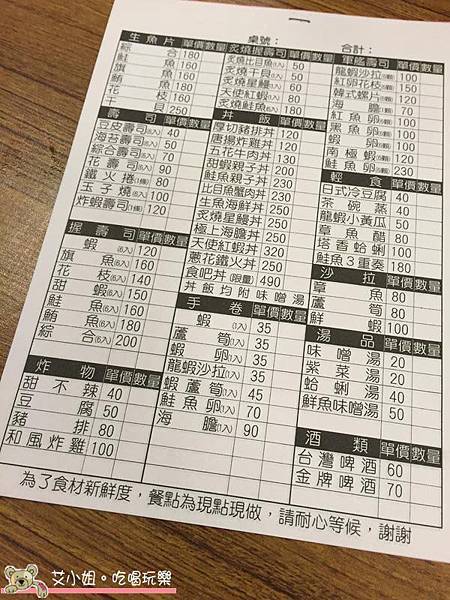 桌號： 合計：
生魚片 單價 數量
綜合 180
鮭魚 160
旗魚 160
鮪魚 180
花枝 160
干貝 250
壽司 單價 數量
豆皮壽司(6入) 40
海苔壽司(6入) 50
綜合壽司(6入) 70
花壽司(1條) 90
鐵火捲(1條) 80
玉子燒(6入) 100
炸蝦壽司(1條) 120
握壽司 單價 數量
蝦(6入) 120
旗魚(6入) 160
花枝(6入) 140
甜蝦(6入) 150
鮭魚(6入) 160
鮪魚(6入) 180
綜合(6入) 200
炸物 單價 數量
甜不辣 40
豆腐 50
豬排 80
和風炸雞 100
炙燒握壽司 單價 數量
炙燒比目魚(1入) 50
炙燒干貝(1入) 50
炙燒星鰻(1入) 60
天使紅蝦(1入) 80
炙燒鮭魚(6入) 180
丼飯 單價 數量
厚切豬排丼 120
唐揚炸雞丼 120
雪花牛肉丼 130
甜蝦親子丼 230
鮭魚親子丼 230
比目魚蟹肉丼 230
生魚海鮮丼 250
炙燒星鰻丼 250
極上海膽丼 250
天使紅蝦丼 320
蔥花鐵火丼 250
食吧丼(限量) 490
丼飯均附味噌湯
手卷 單價 數量
蝦(1入) 35
蘆筍(1入) 35
蝦卵(1入) 35
龍蝦沙拉(1入) 35
蝦蘆筍(1入) 45
鮭魚卵(1入) 70
海膽(1入) 90
軍艦壽司 單價 數量
龍蝦沙拉(6顆) 100
紅卵花枝(6顆) 150
韓式螺片(6顆) 120
海膽(1顆) 70
紅魚卵(6顆) 100
黑魚卵(6顆) 100
蝦卵(6顆) 100
南極蝦(6顆) 120
鮭魚卵(6顆) 230
輕食 單價 數量
日式冷豆腐 40
茶碗蒸 40
龍蝦小黃瓜 50
章魚醋 80
塔香蛤蜊 100
鮭魚3重奏 180
沙拉 單價 數量
章魚 80
蘆筍 80
鮮蝦 100
湯品 單價 數量
味噌湯 20
紫菜湯 20
蛤蜊湯 40
鮮魚味噌湯 50
酒類 單價 數量
台灣啤酒 60
金牌啤酒 70
為了食材新鮮度，餐點為現點現做，請耐心等候，謝謝
艾小姐。吃喝玩樂